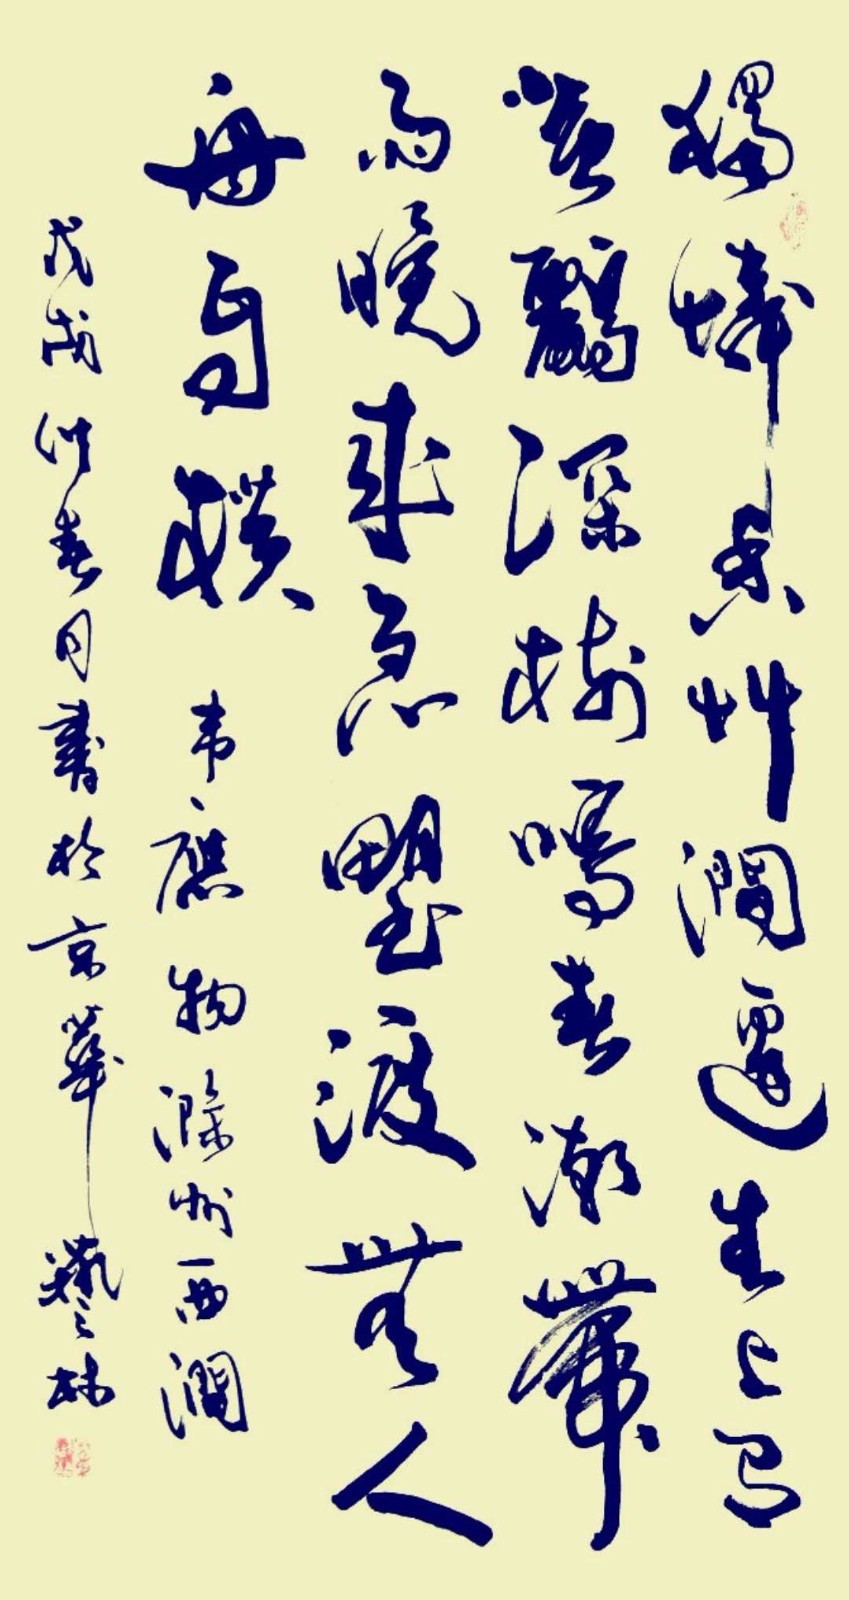 獨憐幽艸澗邊生上有
黃鸝深樹鳴春潮帶
雨晚來急野渡無人
舟自橫 韋應物滁州西澗
戊戌仲春月書於京華 林